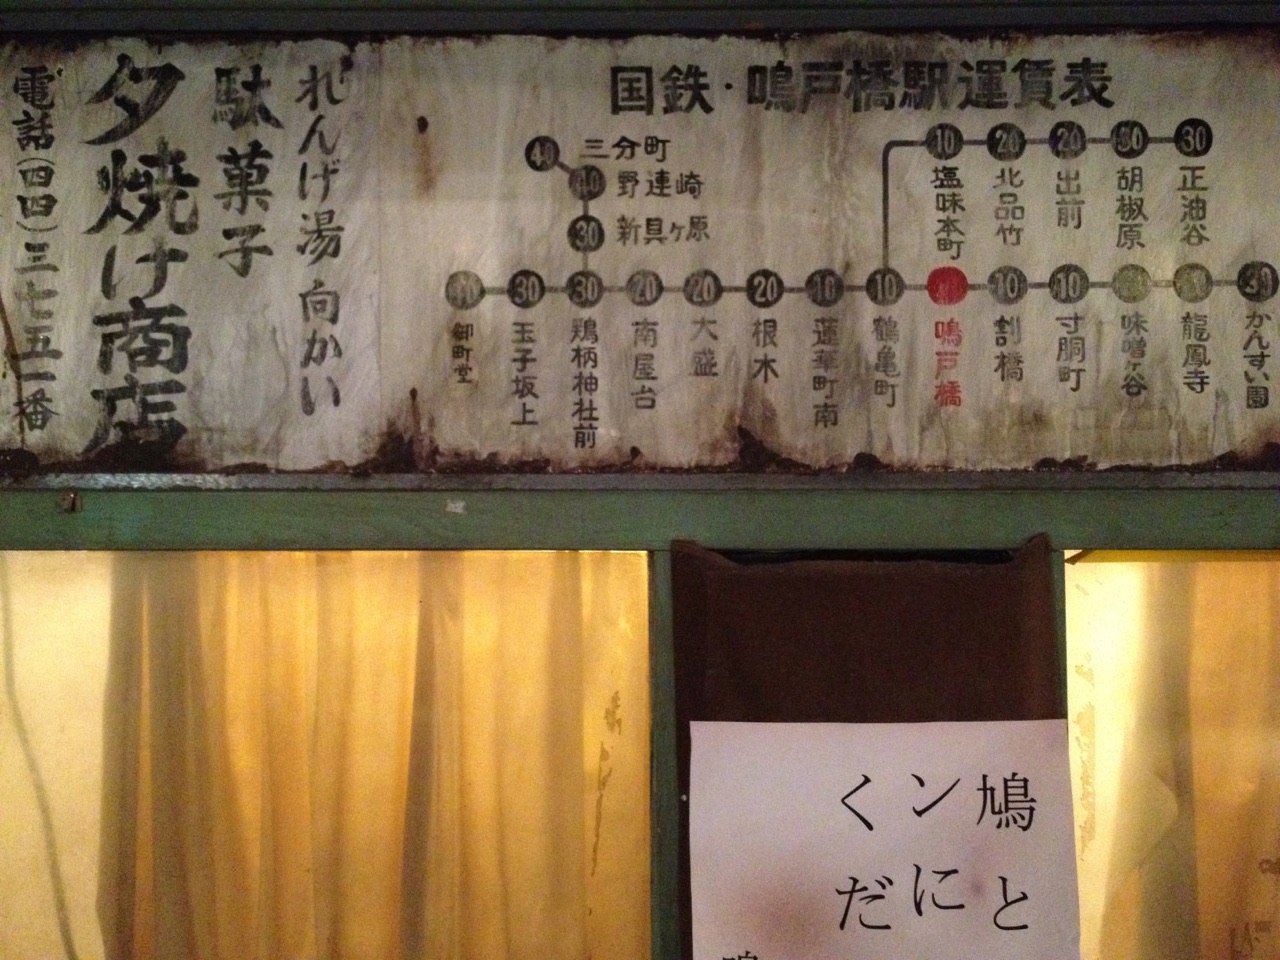 国鉄・鳴戸橋駅運賃表
れんげ湯向かい
駄菓子
夕焼け商店
電話(四四)三七五一番
40 三分町
40 野連崎
30 新具ヶ原
10 塩味本町
20 北品竹
20 出前
30 胡椒原
30 正油谷
御町堂
30 玉子坂上
30 鶏柄神社前
20 南屋台
20 大盛
20 根木
10 蓮華町南
10 鶴亀町
鳴戸橋
10 割橋
10 寸胴町
味噌ヶ谷
龍鳳寺
30 かんすい園
鳩と
ンに
くだ